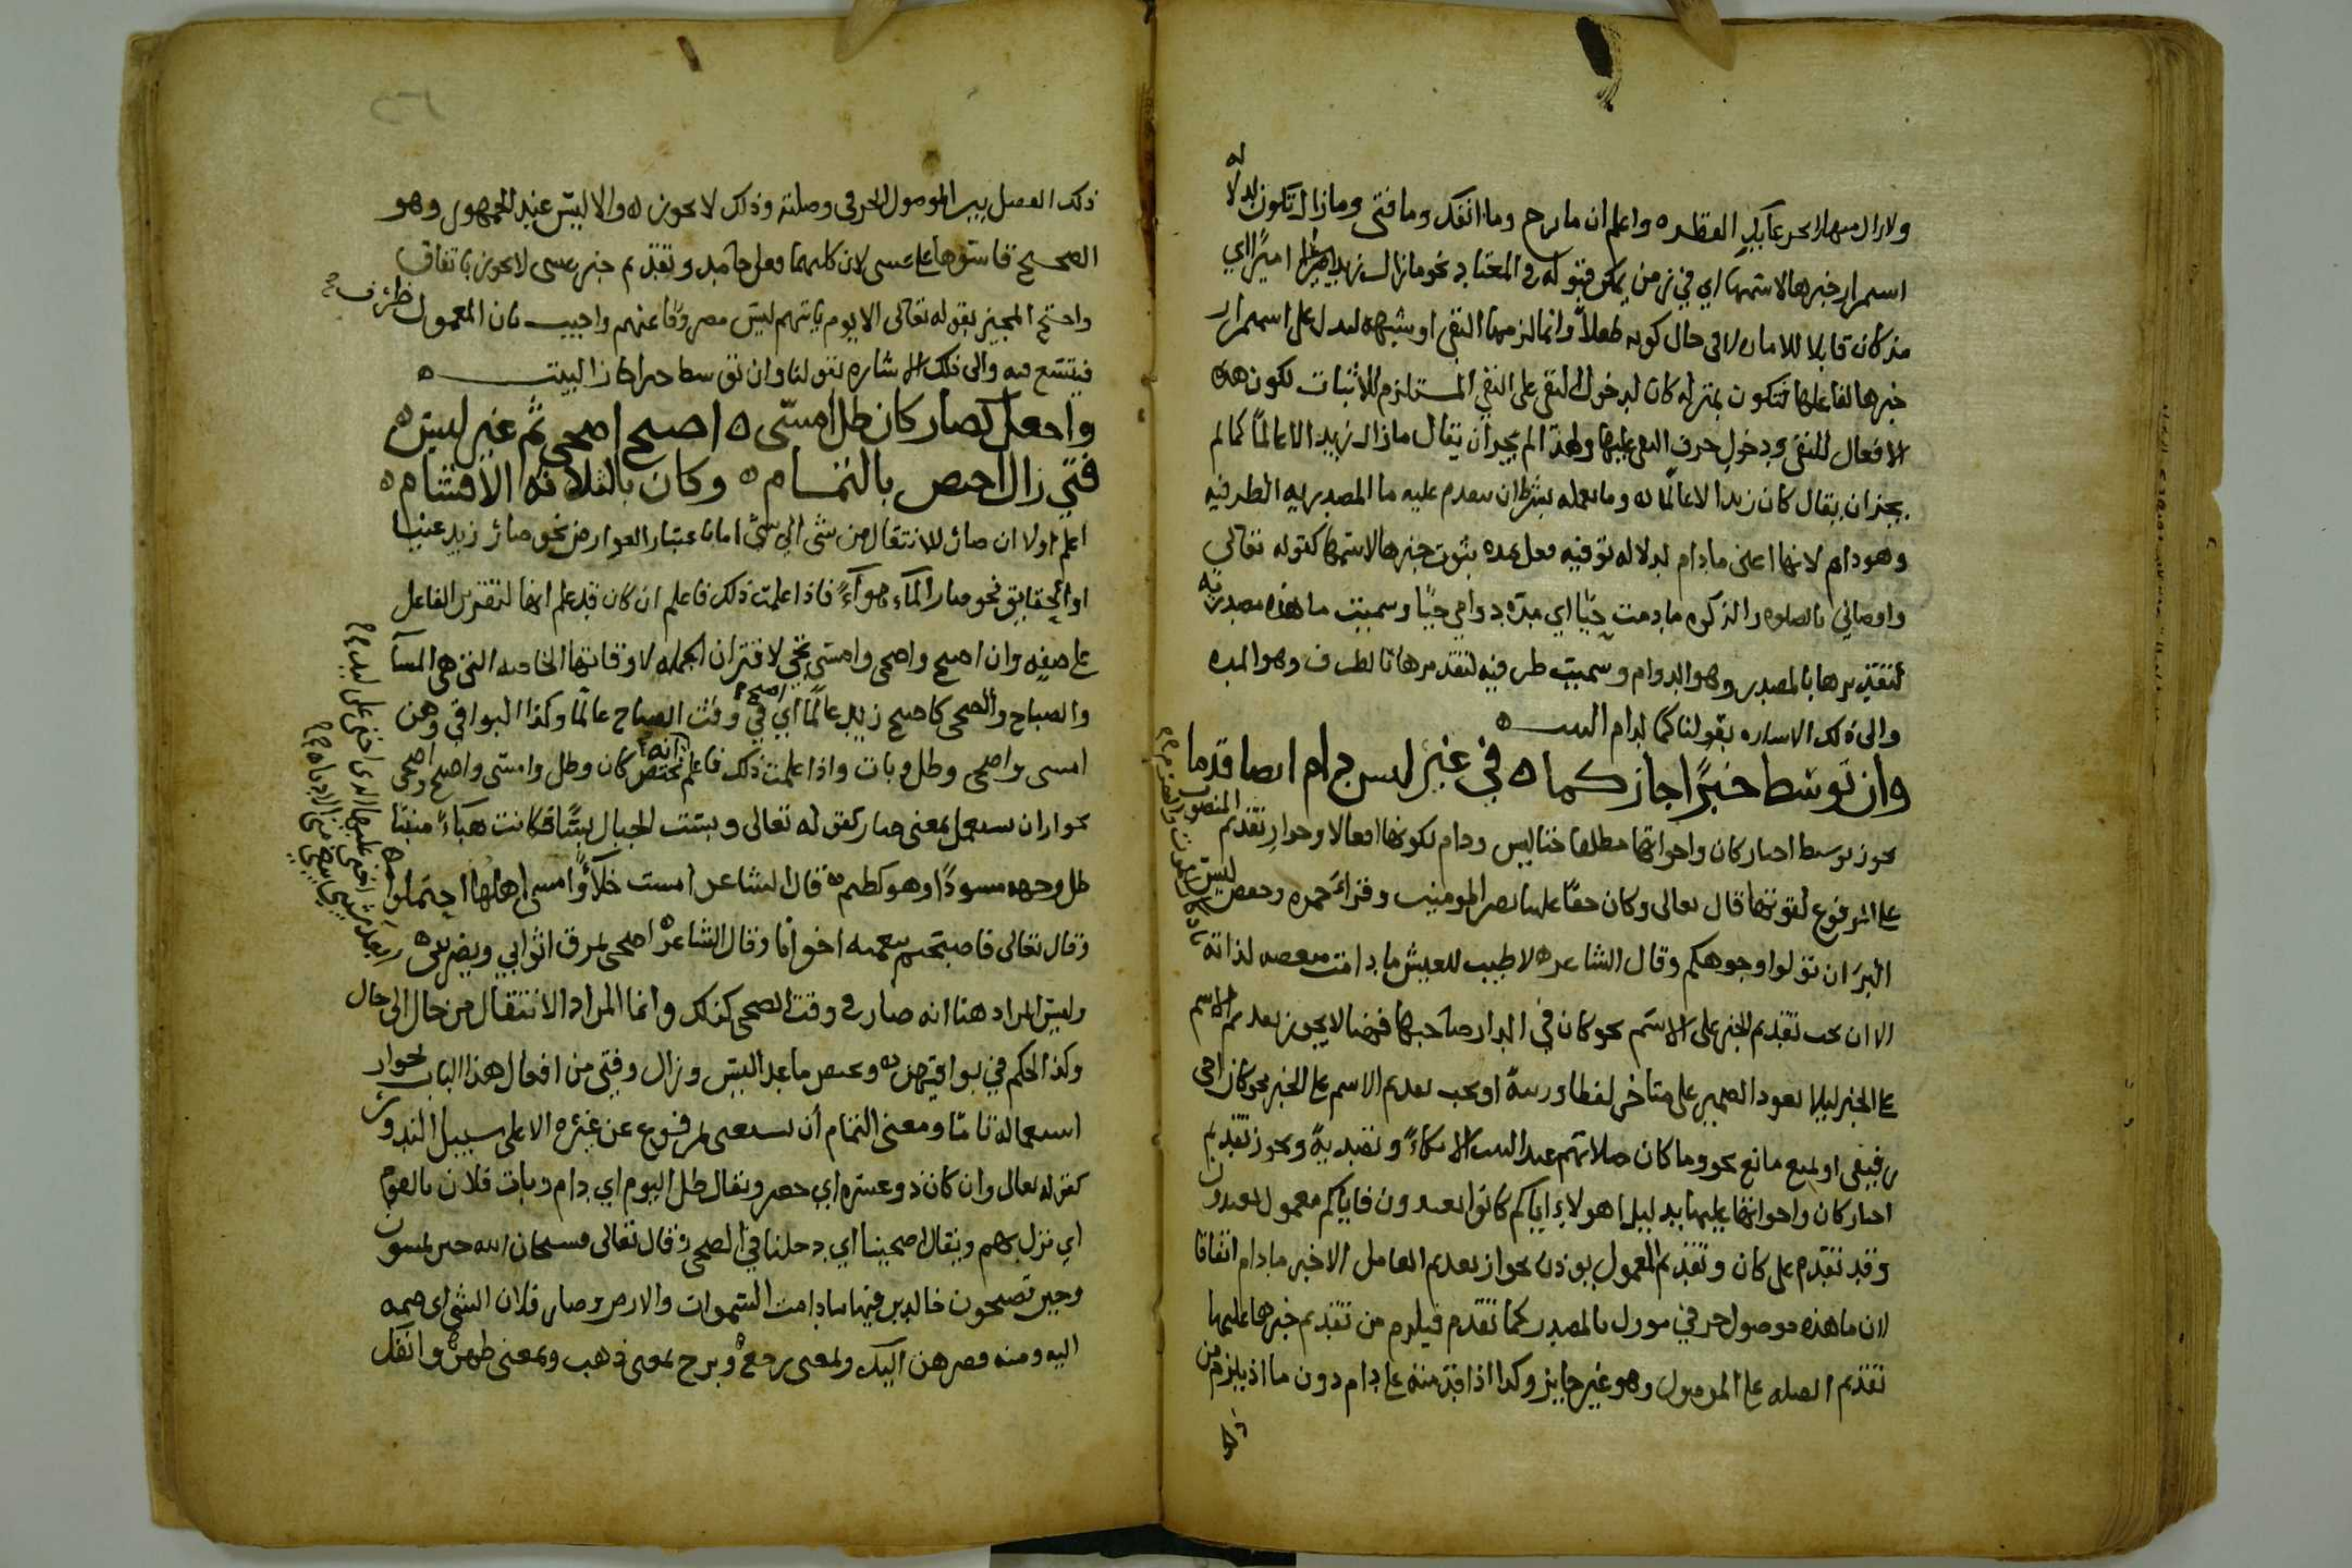 ولا زال منهلا بجرعائك القطر ه واعلم ان ما برح وما انفك وما فتى وما زال تكون لدلالة
استمرار خبرها لاسمها اي في زمن يمكن قبوله في المعتاد نحو ما زال زيد اميرا اي
مذ كان قابلا للامارة لا في حال كونه طفلاً وانما لزمها النفي او شبهه ليدل على استمرار
خبرها لفاعلها فتكون بمنزلة كان لدخول النفي على النفي المستلزم للاثبات لكون هذه
الافعال للنفي ودخول حرف النفي عليها ولهذا لم يجز ان يقال ما زال زيد الا عالماً كما لم
يجز ان يقال كان زيدا لا عالمًا له وما يعمله بشرط ان يتقدم عليه ما المصدريه الظرفيه
وهو دام لانها اعنى ما دام لدلاله توقيت فعل بمده ثبوت خبرها لاسمها كقوله تعالى
واوصاني بالصلوه والزكوه ما دمت حيًا اي مدة دوامي حيًا وسميت ما هذه مصدريه
لتقديرها بالمصدر وهو الدوام وسميت ظرفيه لتقديرها بالظرف وهو المده
والى ذلك الاشاره بقولنا كما لدام البيت ه
وان توسط خبرًا جاز كما ه في غير ليس دام ايضا قدما
يجوز توسط اخبار كان واخواتها مطلقا حتا ليس ودام لكونها افعالا وجواز تقديم المنصوب
على المرفوع لقوتها قال تعالى وكان حقًا علينا نصر المومنين وقراءة حمزه وحفص ليس
البرَ ان تولوا وجوهكم وقال الشاعر ه لا طيب للعيش ما دامت منغصه لذاته
الا ان يجب تقديم الخبر على الاسم نحو كان في الدار صاحبها فهنا لا يجوز تقديم الاسم
على الخبر ليلا يعود الضمير على متاخر لفظا ورتبةً او يجب تقديم الاسم على الخبر نحو كان اخى
رفيقى او لمنع مانع نحو وما كان صلاتهم عند البيت الا مكاءً وتصديةً ويجوز تقديم
اخبار كان واخواتها عليها بدليل اهولاء اياكم كانوا يعبدون فاياكم معمول يعبدون
وقد تقدم على كان وتقديم المعمول يوذن بجواز تقديم العامل الا خبر ما دام اتفاقا
لان ما هذه موصول حرفي مورل بالمصدر كما تقدم فيلزم من تقديم خبرها عليها
تقديم الصله على الموصول وهو غير جايز وكذا اذا قدمته على دام دون ما اذ يلزم من
ذلك الفصل بين الموصول الحرفى وصلته وذلك لا يجوز ه والا ليس عند الجمهور وهو
الصحيح قاسوها على عسى لان كليهما فعل جامد وتقديم خبر عسى لا يجوز باتفاق
واحتج المجيز بقوله تعالى الا يوم ياتيهم ليس مصروفًا عنهم واجيب بان المعمول ظرف
فيتسع فيه والى ذلك الاشاره بقولنا وان توسط خبرا جاز البيت ه
واجعل كصار كان ظل امسى ه اصبح اضحى ثم غير ليس ه
فتي زال اخصص بالتمام ه وكان بالثلاثه الاقسام ه
اعلم اولا ان صار للانتقال من شى الى شى اما باعتبار العوارض نحو صار زيد غنيا
او الحقايق نحو صار الماء هواءً فاذا علمت ذلك فاعلم ان كان قد علم انها لتقرير الفاعل
على صفه وان اصبح واضحى وامسى تجى لاقتران الجمله لاوقاتها الخاصه التي هى المسا
والصباح والضحى كاصبح زيد عالمًا اي في وقت الصباح عالمًا وكذا البواقي وهن
امسى واضحى وظل وبات واذا علمت ذلك فاعلم انه تختص كان وظل وامسى واصبح واضحى
بجواز ان تستعمل بمعنى صار كقوله تعالى وبست الجبال بسًا فكانت هباءً منبثا
ظل وجهه مسودًا وهو كظيم ه قال الشاعر امست خلاءً وامسى اهلها احتملوا
وقال تعالى فاصبحتم بنعمته اخوانا وقال الشاعر ه اضحى يمزق اثوابي ويضربني ه
وليس المراد هنا انه صار في وقت الضحى كذلك وانما المراد الانتقال من حال الى حال
وكذا الحكم في بواقيهن ه ويختص ما عدا ليس وزال وفتى من افعال هذا الباب بجواز
استعماله تامًا ومعنى التمام أن يستغنى بمرفوع عن غيره الا على سبيل الندور
كقوله تعالى وان كان ذو عسره اي حضر ويقال ظل اليوم اي دام وبات فلان بالقوم
اي نزل بهم ويقال اضحينا اي دخلنا في الضحى وقال تعالى فسبحان الله حين تمسون
وحين تصبحون خالدين فيها ما دامت السموات والارض وصار فلان الشى اى ضمه
اليه ومنه فصرهن اليك وبمعنى رجع ه وبرح بمعنى ذهب وبمعنى ظهر ه وانفك